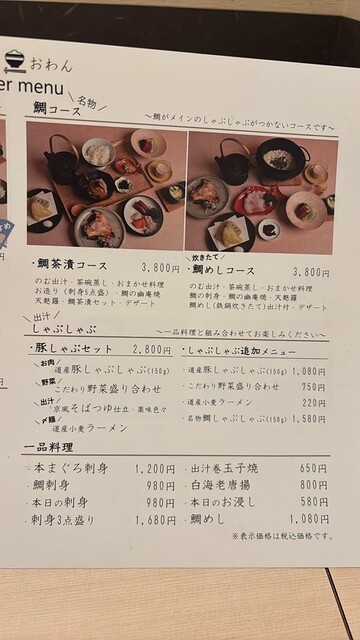 おわん
er menu
名物
鯛コース
〜鯛がメインのしゃぶしゃぶがつかないコースです〜
・鯛茶漬コース 3,800円
のむ出汁・茶碗蒸し・おまかせ料理
お造り(刺身5点盛)・鯛の幽庵焼
天麩羅・鯛茶漬セット・デザート
炊きたて
・鯛めしコース 3,800円
のむ出汁・茶碗蒸し・おまかせ料理
鯛の刺身・鯛の幽庵焼・天麩羅
鯛めし(鉄鍋炊きたて)出汁付・デザート
出汁
しゃぶしゃぶ
〜一品料理と組み合わせてお楽しみください〜
・豚しゃぶセット 2,800円
お肉
道産豚しゃぶしゃぶ(150g)
野菜
こだわり野菜盛り合わせ
出汁
京風そばつゆ仕立・薬味色々
〆麺
道産小麦ラーメン
・しゃぶしゃぶ追加メニュー
・道産豚しゃぶしゃぶ(150g) 1,080円
・こだわり野菜盛り合わせ 750円
・道産小麦ラーメン 220円
・名物鯛しゃぶしゃぶ(150g) 1,580円
一品料理
・本まぐろ刺身 1,200円
・鯛刺身 980円
・本日の刺身 980円
・刺身3点盛り 1,680円
・出汁巻玉子焼 650円
・白海老唐揚 800円
・本日のお浸し 580円
・鯛めし 1,080円
※表示価格は税込価格です。